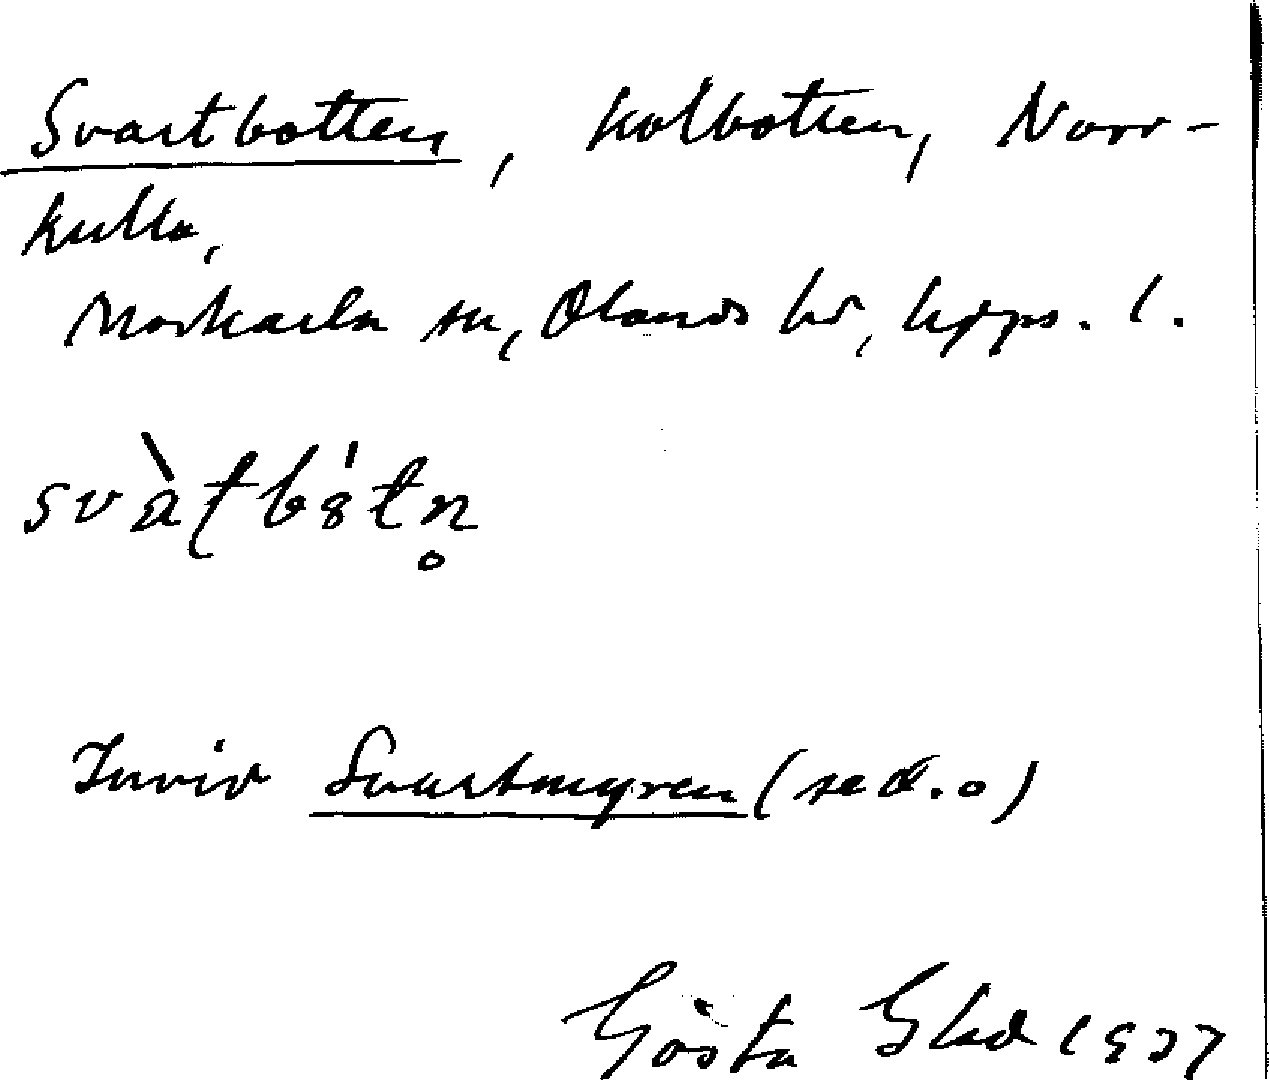 Svartbotten, kolbotten, Norr-
kulla,
Morkarla sn, Olands hd, Upps. l.
svàʈbɞ́tn̥
Invid Svartmyren (se d. o)
Gösta Glad 1937